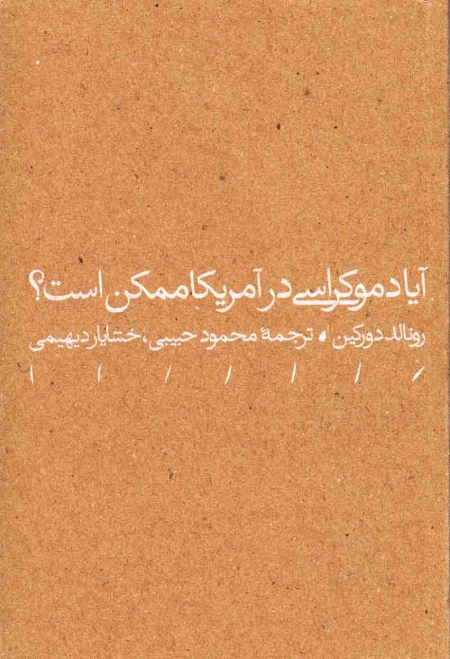 آیا دموکراسی در آمریکا ممکن است؟
رونالد دورکین، ترجمهٔ محمود حبیبی، خشایار دیهیمی